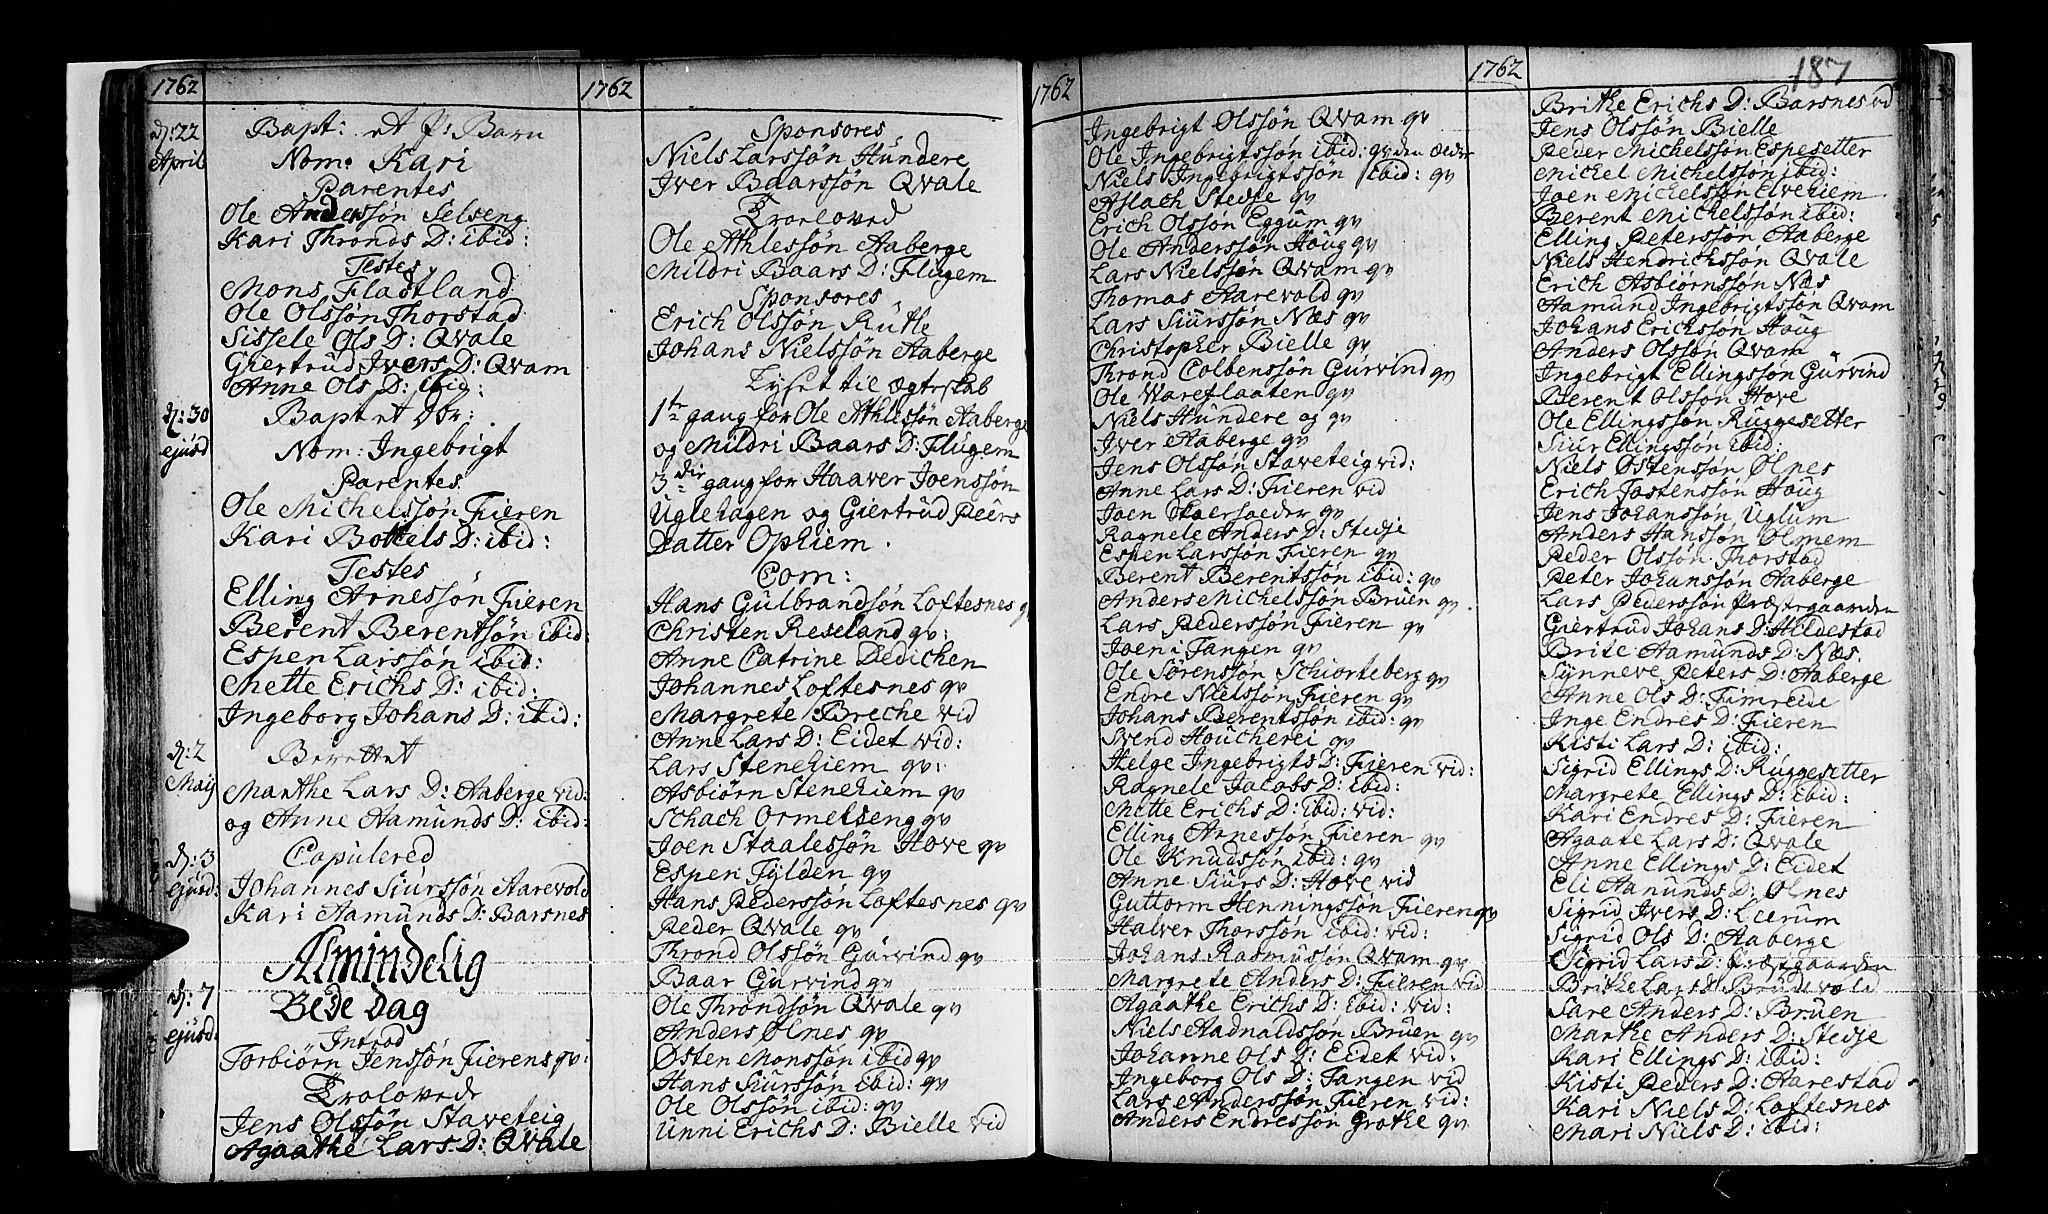 1762
d: 22
April
Bapt: et P: Barn
Nom: Kari
Parentes
Ole Anderssön Selseng
Kari Thronds D: ibid:
Testes
Mons Flastland
Ole Olssön Thorstad
Sissele Ols D: Qvale
Giertrud Ivers D: Qvam
Anne Ols D: ibid:
d: 30
ejusd
Bapt et Dbr:
Nom: Ingebrigt
Parentes
Ole Michelssön Fieren
Kari Bottels D: ibid:
Testes
Elling Arnessön Fieren
Berent Berentsön ibid:
Espen Larssön ibid:
Mette Erichs D: ibid:
Ingeborg Johans D: ibid:
d: 2
Maij
Berettet
Marthe Lars D: Aaberge vid:
og Anne Aamunds D: ibid:
d: 3
ejusd:
Copulered
Johannes Siurssön Aarevold
Kari Aamunds D: Barsnes
Almindelig
Bede Dag
d: 7
ejusd:
Introd
Torbiörn Jenssön Fierens qv:
Trolovede
Jens Olssön Staveteig
Agaathe Lars D: Qvale
1762
Sponsores
Niels Larssön Hundere
Iver Baarssön Qvale
Troeloved
Ole Athlessön Aaberge
Mildri Baars D: Flugem
Sponsores
Erich Olssön Rutle
Johans Nielssön Aaberge
Lyset til Ægteskab
1te gang for Ole Athlessön Aaberge
og Mildri Baars D: Flugem
3die gang for Haaver Joenssön
Uglehagen og Giertrud Peers
Datter Opheim.
Com:
Hans Gulbrandsön Loftesnes qv
Christen Reseland qv:
Anne Catrine Dedichen
Johannes Loftesnes qv
Margrete Breche vid
Anne Lars D: Eidet vid:
Lars Stenehiem qv:
Asbiörn Stenehiem qv
Schach Ormelseng qv
Joen Staalessön Hove qv
Espen Fylden qv
Hans Pederssön Loftesnes qv
Peder Qvale qv
Thrond Olssön Gurvind qv
Baar Gurvind qv
Ole Throndsön Qvale qv
Anders Ölnes qv
Østen Monssön ibid qv
Hans Siurssön ibid: qv
Ole Olssön ibid: qv
Unni Erichs D: Bielle vid
1762
Ingebrigt Olssön Qvam qv
Ole Ingebrigtssön ibid: qv den Ældr
Niels Ingebrigtssön ibid: qv
Aslach Stedje qv
Erich Olssön Eggum qv
Ole Anderssön Houg qv
Lars Nielssön Qvam qv
Thomas Aarevold qv
Lars Siurssön Næs qv
Christopher Bielle qv
Thrond Colbenssön Gurvind qv
Ole Wareflaaten qv
Niels Hundere og qv
Iver Aaberge qv
Jens Olssön Staveteig vid:
Anne Lars D: Fieren vid
Joen Skaersoeder qv
Ragnele Anders D: Stedje
Espen Larssön Fieren qv
Berent Berentssön ibid: qv
Anders Michelssön Bruen qv
Lars Pederssön Fieren qv
Joen i Tangen qv
Ole Sörenssön Schiorteberg qv
Endre Nielssön Fieren qv
Johans Berentssön ibid: qv
Svend Houcherei qv
Helge Ingebrigts D: Fieren vid:
Ragnele Jacobs D: ibid:
Mette Erichs D: ibid: vid:
Elling Arnessön Fieren qv
Ole Knudssön ibid: qv
Anne Siurs D: Hove vid
Guttorm Henningssön Fieren qv
Halver Thorssön ibid: vid:
Johans Rasmussön Qvam qv
Margrete Anders D: Fieren vid
Agaathe Erichs D: ibid: vid:
Niels Aadnaldssön Bruen qv
Johanne Ols D: Eidet vid:
Ingeborg Ols D: Tangen vid
Lars Anderssön Fieren vid:
Anders Endressön Grothe qv
1762
187
Brithe Erichs D: Barsnes vd
Jens Olssön Bielle
Peder Michelssön Espesetter
Michel Michelssön ibid:
Joen Michelssön Elvehiem
Berent Michelssön ibid:
Elling Peterssön Aaberge
Niels Hendrichssön Qvale
Erich Asbiörnssön Næs
Aamund Ingebrigtssön Qvam
Johans Erichssön Houg
Anders Olssön Qvam
Ingebrigt Ellingssön Gurvind
Berent Olssön Hove
Ole Ellingssön Ruggesetter
Siur Ellingssön ibid:
Niels Østenssön Ölnes
Erich Jostenssön Houg
Jens Johanssön Uglum
Anders Hanssön Ölmem
Peder Olssön Thorstad
Peter Johanssön Aaberge
Lars Pederssön Præstegaarden
Giertrud Johans D: Hildestad
Brite Aamunds D: Næs.
Synneve Peters D: Aaberge
Anne Ols D: Fimreide
Inge Endres D: Fieren
Kisti Lars D: ibid:
Sigrid Ellings D: Ruggesetter
Margrete Ellings D: ibid:
Kari Endres D: Fieren
Agaate Lars D: Qvale
Anne Ellings D: Eidet
Eli Aamunds D: Ölnes
Sigrid Ivers D: Leerum
Sigrid Ols D: Aaberge
Sigrid Lars D: Præstgaarden
Brithe Lars D: Brudevold
Sare Anders D: Bruen
Marthe Anders D: Stedje
Kari Ellings D: ibid:
Kisti Peders D: Aarestad
Kari Niels D: Loftesnes
Mari Niels D: ibid: